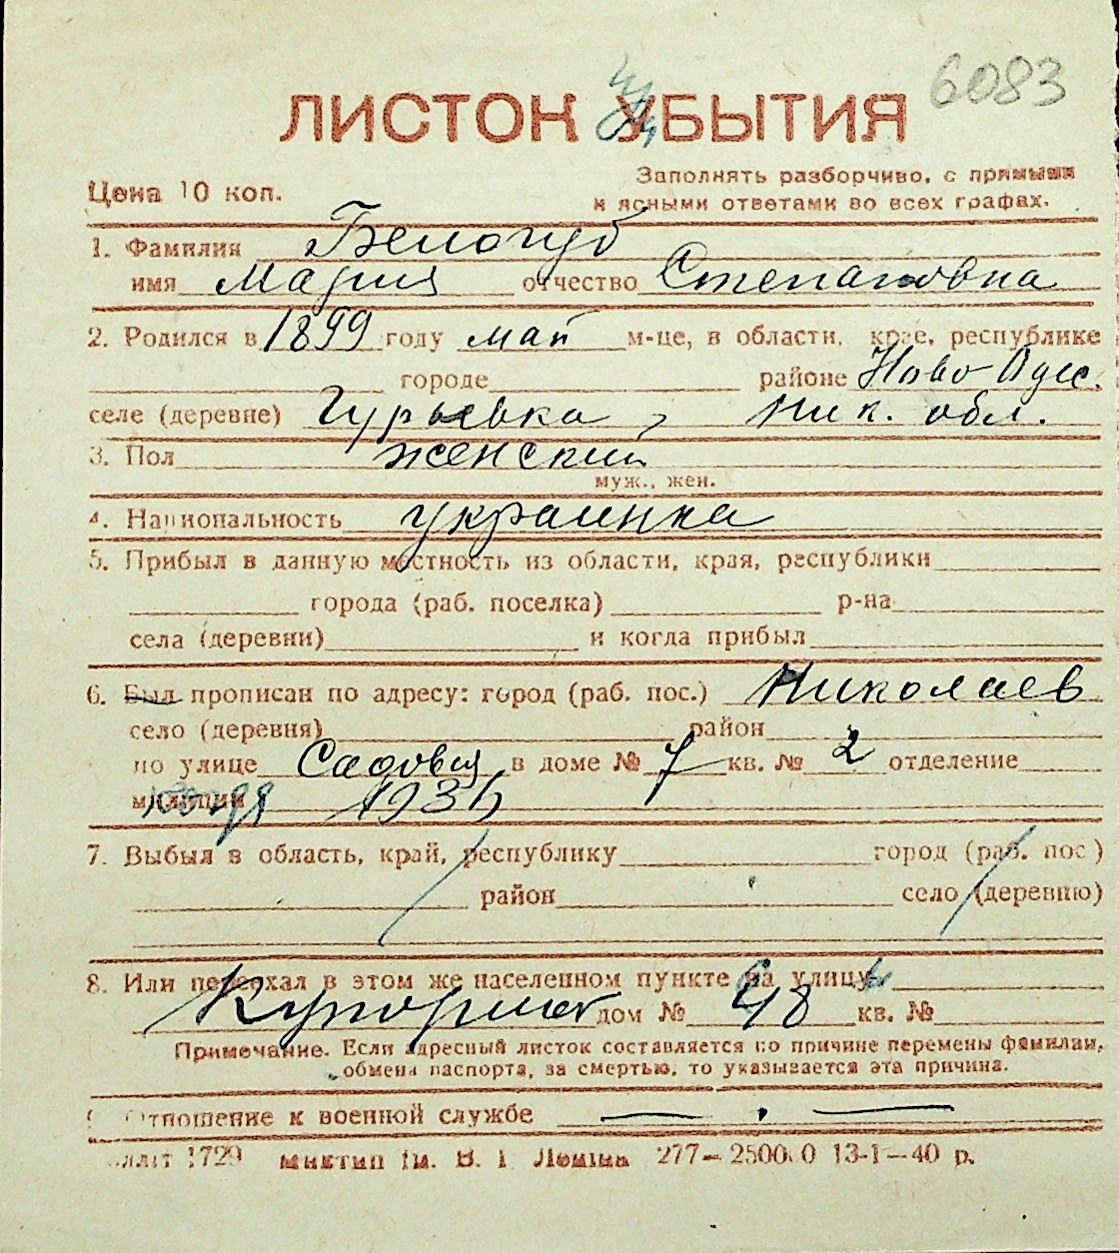 6083
ЛИСТОК УБЫТИЯ
Цена 10 коп.
Заполнять разборчиво, с прямыми
и ясными ответами во всех графах.
1. Фамилия Белогуб
имя Мария отчество Степановна
2. Родился в 1899 году май м-це, в области, крае, республике
городе районе Ново Одес.
селе (деревне) Гурьевка, Ник. обл.
3. Пол женский
муж., жен.
4. Национальность украинка
5. Прибыл в данную местность из области, края, республики
города (раб. поселка) р-на
села (деревни) и когда прибыл
6. Был прописан по адресу: город (раб. пос.) Николаев
село (деревня) район
по улице Садовая в доме № 7 кв. № 2 отделение
милиции
7. Выбыл в область, край, республику город (раб. пос.)
район село (деревню)
8. Или переехал в этом же населенном пункте на улицу
дом № 48 кв. №
Примечание. Если адресный листок составляется по причине перемены фамилии,
обмена паспорта, за смертью, то указывается эта причина.
Отношение к военной службе — . —
1729 277— 13-1—40 р.